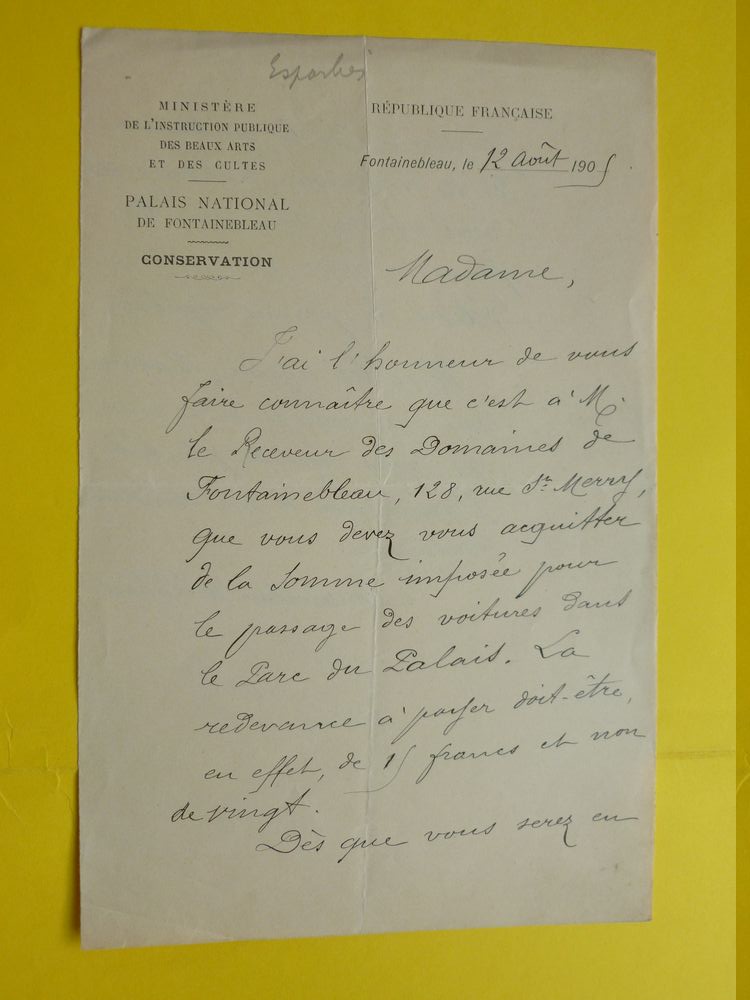 Esparbès
MINISTÈRE
DE L'INSTRUCTION PUBLIQUE
DES BEAUX ARTS
ET DES CULTES
PALAIS NATIONAL
DE FONTAINEBLEAU
CONSERVATION
RÉPUBLIQUE FRANÇAISE
Fontainebleau, le 12 Août 1905.
Madame,
J'ai l'honneur de vous
faire connaître que c'est à M.
le Receveur des Domaines de
Fontainebleau, 128, rue St. Merry,
que vous devez vous acquitter
de la somme imposée pour
le passage des voitures dans
le Parc du Palais. La
redevance à payer doit-être,
en effet, de 15 francs et non
de vingt.
Dès que vous serez en